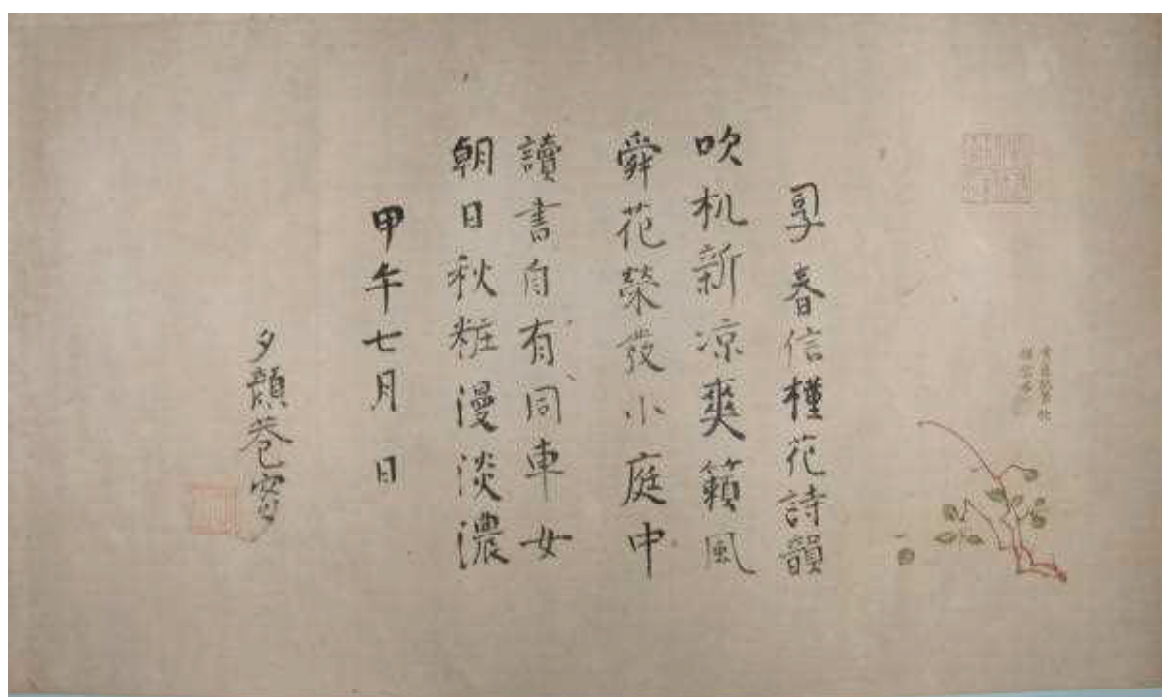 享春信槿花詩韻
吹机新凉爽籟風
舜花榮發小庭中
讀書自有同車女
朝日秋粧漫淡濃
甲午七月日
夕顏巷